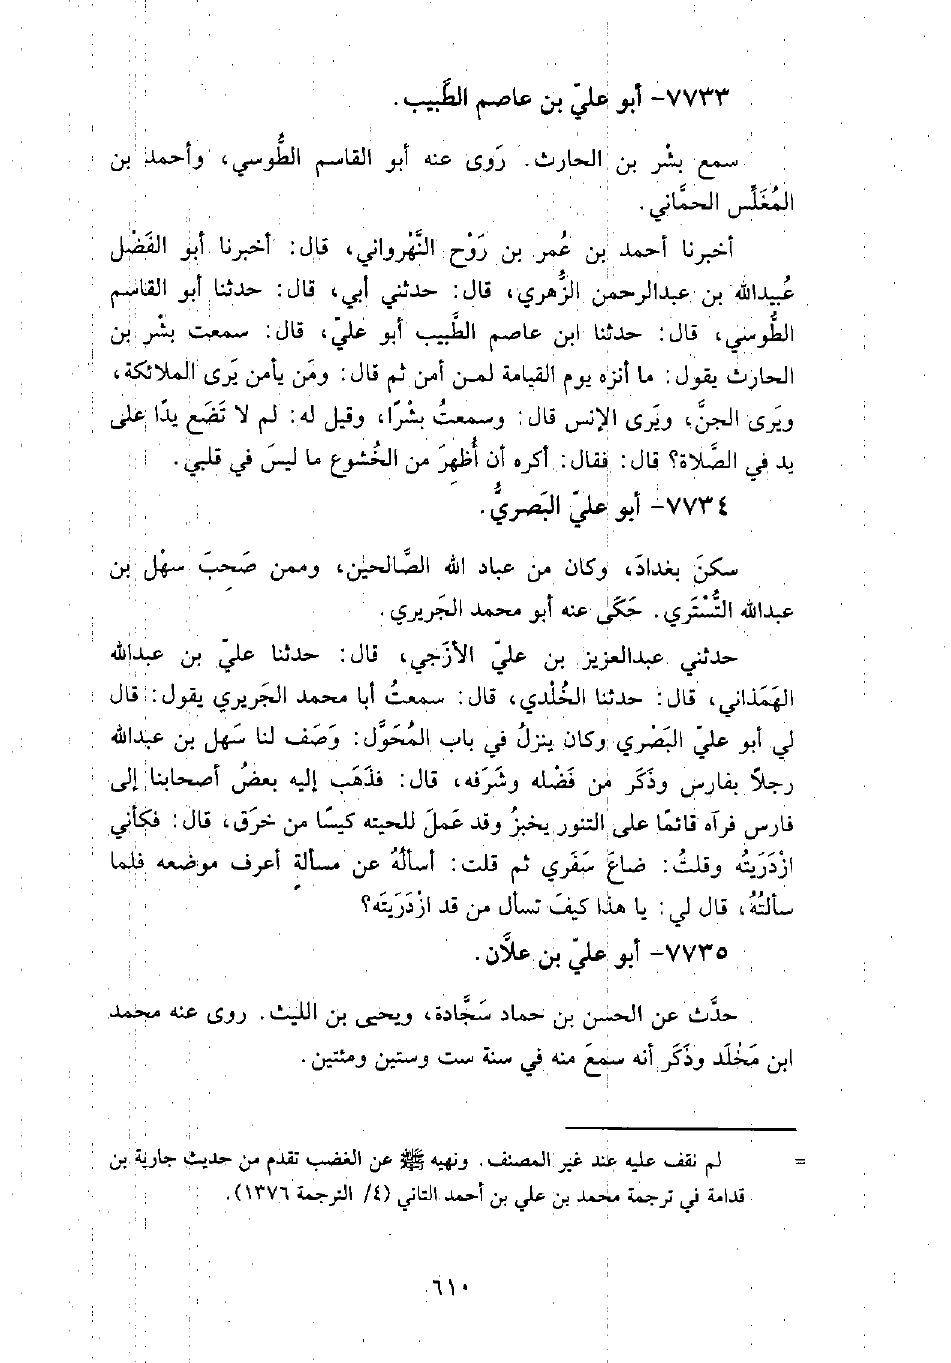 ٧٧٣٣- أبو عليّ بن عاصم الطَّبيب.
سمع بشْر بن الحارث. رَوى عنه أبو القاسم الطُّوسي، وأحمد بن
المُغَلِّس الحمَّاني.
أخبرنا أحمد بن عُمر بن رَوْح النَّهْرواني، قال: أخبرنا أبو الفَضْل
عُبيدالله بن عبدالرحمن الزُّهري، قال: حدثني أبي، قال: حدثنا أبو القاسم
الطُّوسي، قال: حدثنا ابن عاصم الطَّبيب أبو عليّ، قال: سمعت بشْر بن
الحارث يقول: ما أنزه يوم القيامة لمن أمن ثم قال: ومَن يأمن يَرى الملائكة،
ويَرى الجنَّ، ويَرى الإنس قال: وسمعتُ بشْرًا، وقيل له: لم لا تَضَع يدًا على
يد في الصَّلاة؟ قال: فقال: أكره أن أُظهِرَ من الخُشوع ما ليسَ في قلبي.
٧٧٣٤- أبو عليّ البَصريُّ.
سكنَ بغدادَ، وكان من عباد الله الصَّالحين، وممن صَحِبَ سهْل بن
عبدالله التُّسْتَري. حَكَى عنه أبو محمد الجَريري.
حدثني عبدالعزيز بن عليّ الأزَجي، قال: حدثنا عليّ بن عبدالله
الهَمَذاني، قال: حدثنا الخُلْدي، قال: سمعتُ أبا محمد الجَريري يقول: قال
لي أبو عليّ البَصْري وكان ينزلُ في باب المُحَوَّل: وَصَف لنا سَهل بن عبدالله
رجلاً بفارس وذَكَر من فَضْله وشَرَفه، قال: فذَهَب إليه بعضُ أصحابنا إلى
فارس فرآه قائمًا على التنور يخبزُ وقد عَملَ للحيته كيسًا من خرَق، قال: فكأني
ازْدَرَيتُه وقلتُ: ضاعَ سَفَري ثم قلت: أسألُهُ عن مسألةٍ أعرف موضعه فلما
سألتُهُ، قال لي: يا هذا كيفَ تسأل من قد ازْدَرَيتَه؟
٧٧٣٥- أبو عليّ بن علاَّن.
حدَّث عن الحسن بن حماد سَجَّادة، ويحيى بن الليث. روى عنه محمد
ابن مَخْلَد وذَكَر أنه سمعَ منه في سنة ست وستين ومئتين.
= لم نقف عليه عند غير المصنف. ونهيه ﷺ عن الغضب تقدم من حديث جارية بن
قدامة في ترجمة محمد بن علي بن أحمد التاني (٤/ الترجمة ١٣٧٦).
٦١٠